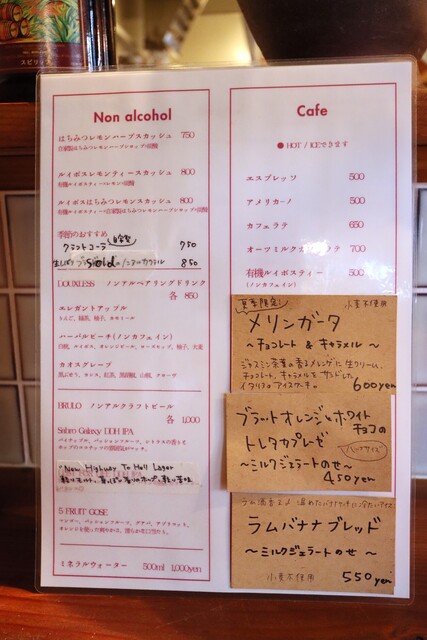 スピリッツ
Non alcohol
はちみつレモンハーブスカッシュ 750
自家製はちみつレモンハーブシロップ+炭酸
ルイボスレモンティースカッシュ 800
有機ルイボスティー+レモン+炭酸
ルイボスはちみつレモンスカッシュ 800
有機ルイボスティー+自家製はちみつレモンハーブシロップ+炭酸
季節のおすすめ
クラフトコーラ 自家製 750
sold
ノンアルカクテル 850
DOUXLESS ノンアルペアリングドリンク
各 850
エレガントアップル
ハーバルピーチ(ノンカフェイン)
カオスグレープ
BRULO ノンアルクラフトビール
各 1,000
Sabro Galaxy DDH IPA
パイナップル、パッションフルーツ、シトラスの香りと
New Highway To Hell Lager
5 FRUIT GOSE
マンゴー、パッションフルーツ、グアバ、アプリコット、
ミネラルウォーター 500ml 1,000yen
Cafe
● HOT / ICEできます
エスプレッソ 500
アメリカーノ 500
カフェラテ 650
オーツミルクカフェラテ 700
有機ルイボスティー 500
(ノンカフェイン)
夏季限定 小麦不使用
メリンガータ
〜チョコレート & キャラメル〜
ジャスミン茶葉の香るメレンゲに生クリーム、
チョコレート、キャラメルをサンドした、
イタリアのアイスケーキ。 600yen
ブラッドオレンジとホワイト
チョコの
トレタカプレーゼ
ハーフサイズ
〜ミルクジェラートのせ〜
450yen
ラム酒香るよ 温めたバナナケーキに冷たいアイス
ラムバナナブレッド
〜ミルクジェラートのせ〜
小麦不使用 550yen